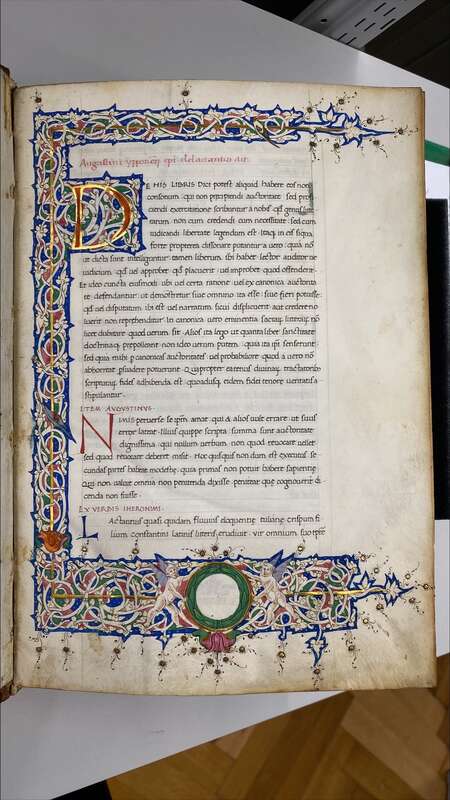 Augustini ypponen epi de lactantio ait
DE HIS LIBRIS Dici potest aliquid habere eos non
consonum qui non precipiendi auctoritate sed pro
ciendi exercitatione scribuntur a nobis
rarum non cum credendi cum necessitate sed cum
iudicandi libertate legendum est
forte propterea dissonare putantur a uero quia nō
ut dicta sunt intelliguntur tamen liberum ibi habet lector auditorue
iudicium quo uel approbet qd placuerit uel improbet quod offenderit
Et ideo cuncta eiusmodi nisi uel certa ratione uel ex canonica auctorita
te defendantur ut demonstretur siue omnino ita esse siue fieri potuisse
qd uel disputatum ibi est uel narratum sicui displicuerit aut credere no
luerit non reprehenditur In canonica uero eminentia
licet dubitare quod uerum sit Alios ita lego ut quanta libet sanctitate
doctrinaq prepolleant non ideo uerum putem quia ita ipsi senserunt
sed quia mihi p canonicas auctoritates uel probabiliter quod a uero nō
abhorreat p̄suadere potuerunt Quapropter
scripturis fides adhibenda est quadusq eidem fidei tenore ueritas
stipulantur
ITEM AUGUSTINUS
NIMIS peruerse se ipm̄ amat qui & alios uult errare ut suus
error lateat Illius quippe scripta summa sunt auctoritate
dignissima qui nullum uerbum non quod reuocare uellet
sed quod reuocare deberet misit Hoc quisquis non dum est executus se
cundas partes habeat modestie quia primas non potuit habere sapientie
Qui non ualuit omnia non penitenda dixisse peniteat que cognouerit di
cenda non fuisse
EX VERBIS IHERONIMI
LActantius quasi quidam fluuius eloquentie tuliane crispum fi
lium constantini latinis litteris erudiuit uir omnium suo tpre